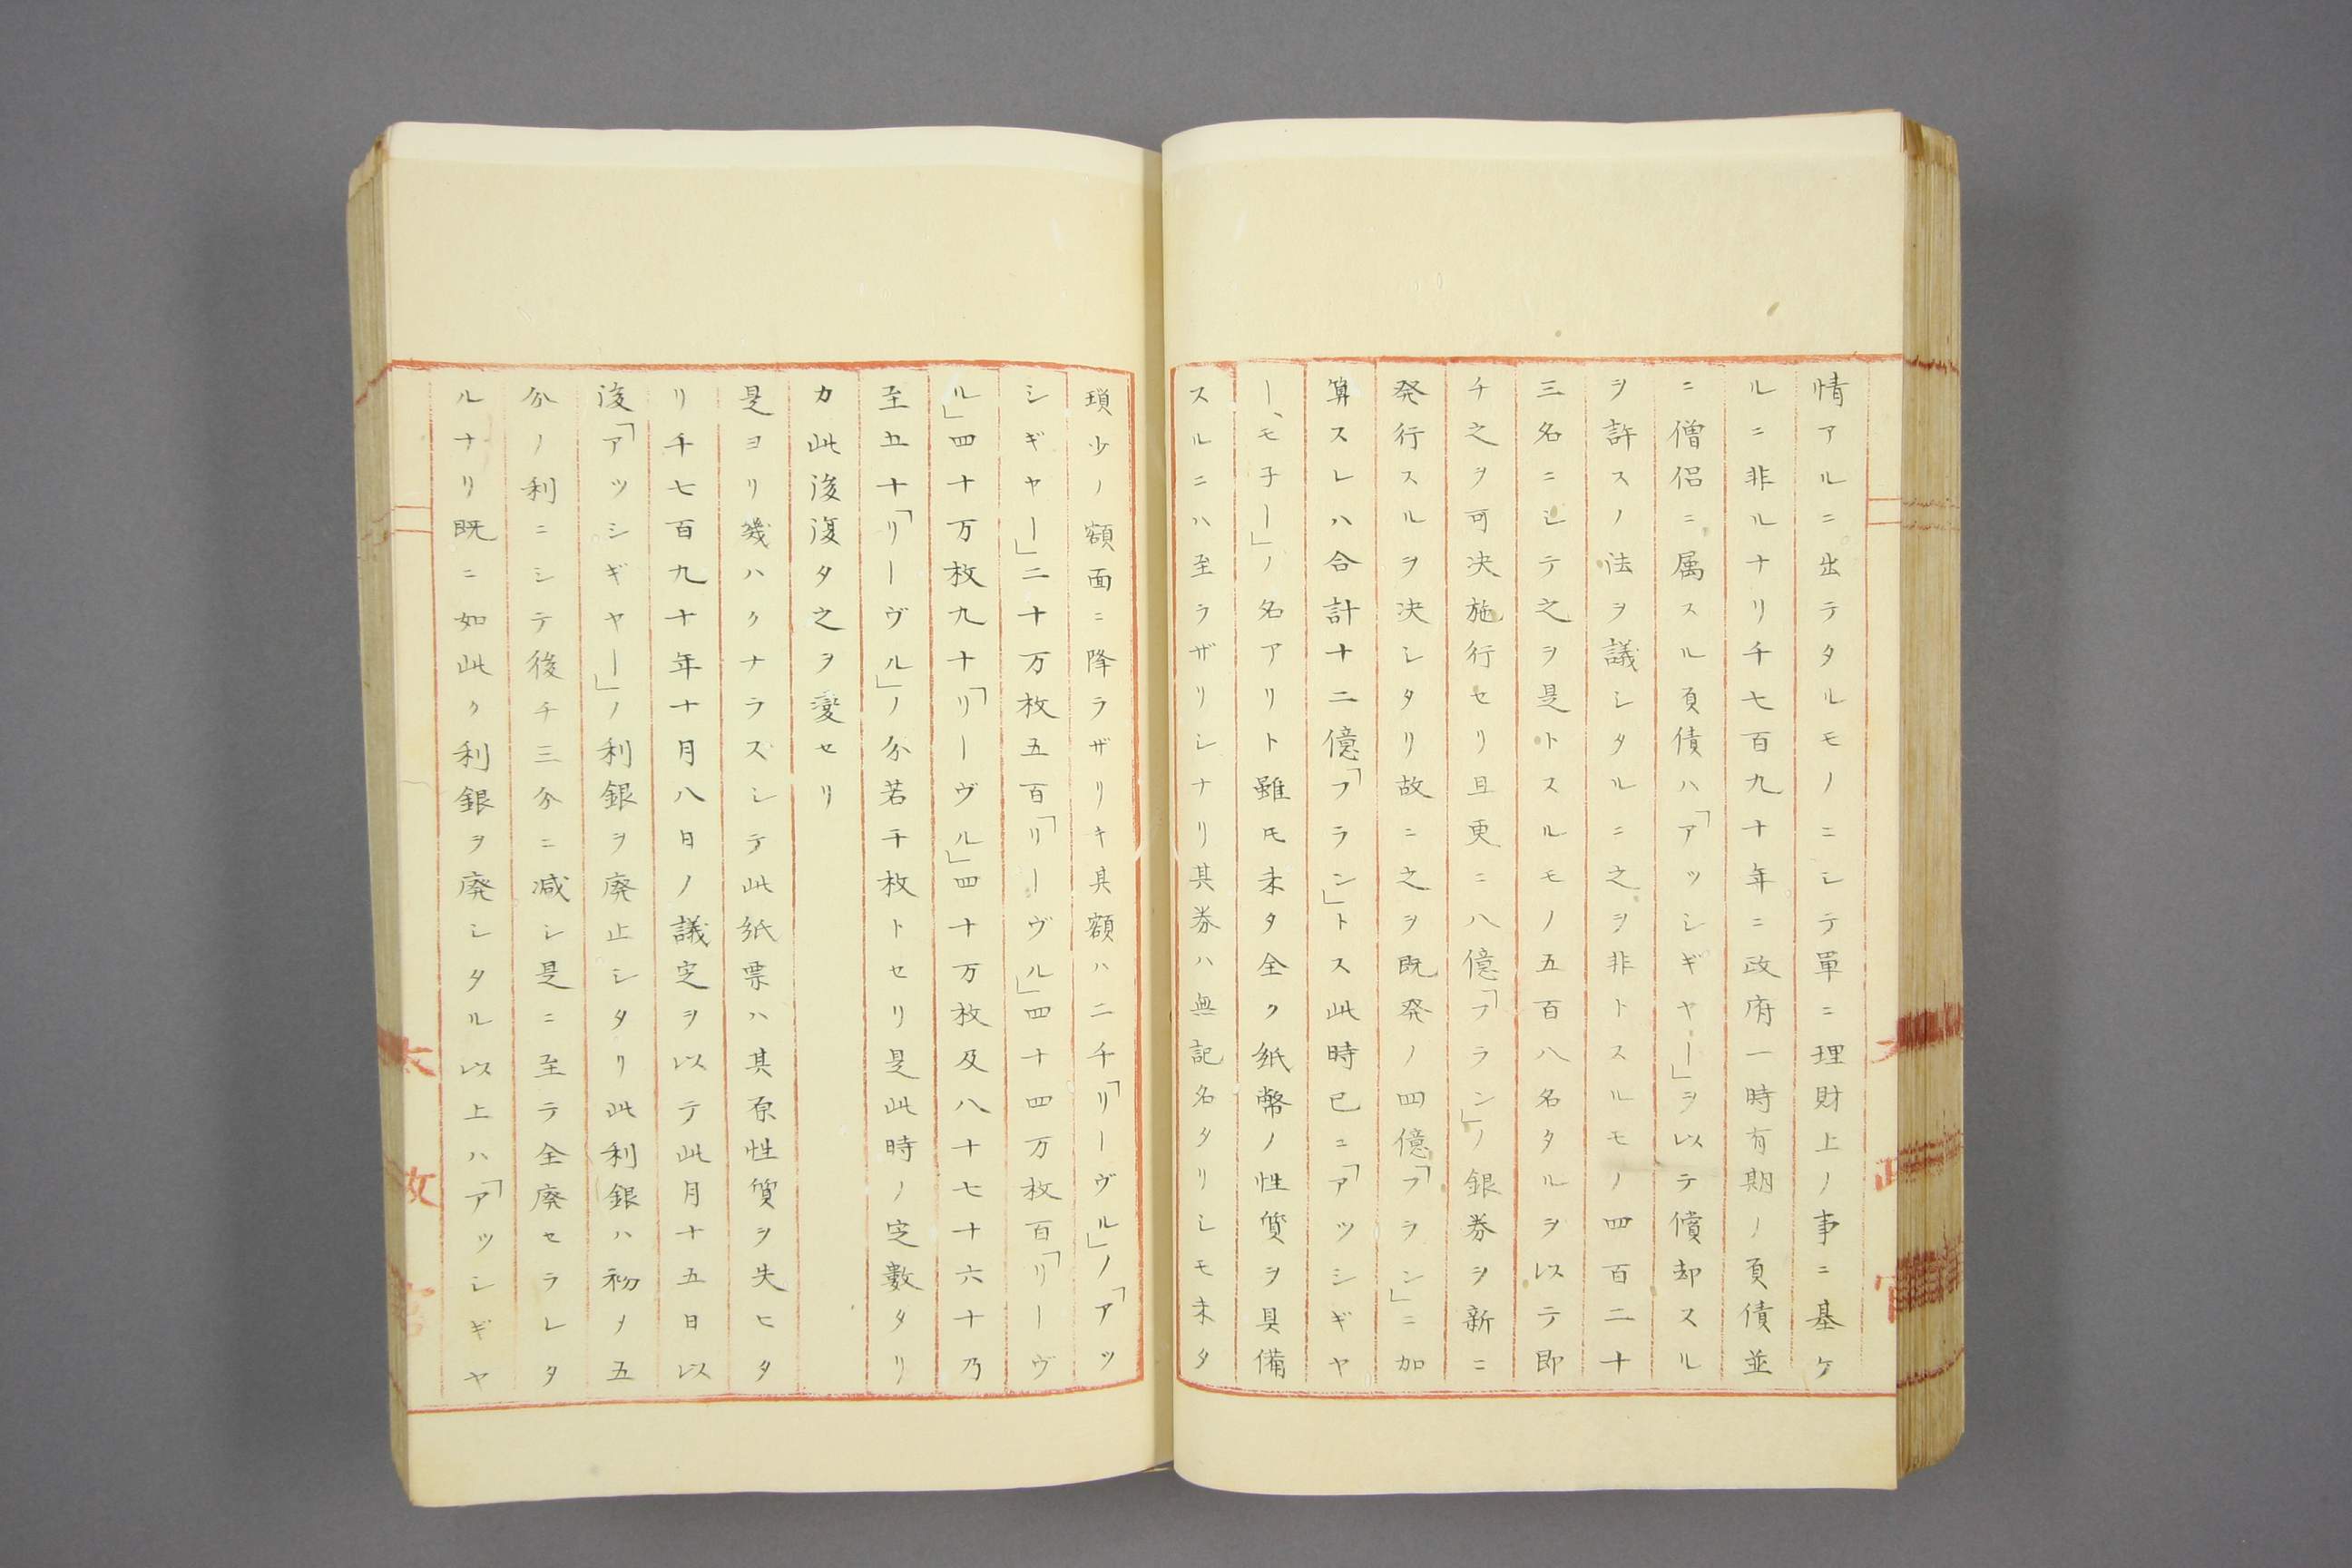 情アルニ出テタルモノニシテ單ニ理財上ノ事ニ基ケ
ルニ非ルナリ千七百九十年ニ政府一時有期ノ負債並
ニ僧侶ニ属スル負債ハ「アッシギヤー」ヲ以テ償却スル
ヲ許スノ法ヲ議シタルニ之ヲ非トスルモノ四百二十
三名ニシテ之ヲ是トスルモノ五百八名タルヲ以テ即
チ之ヲ可决施行セリ且更ニ八億「フラン」ノ銀券ヲ新ニ
発行スルヲ决シタリ故ニ之ヲ既発ノ四億「フラン」ニ加
算スレハ合計十二億「フラン」トス此時已ニ「アッシギヤ
ー、モ子ー」ノ名アリト雖モ未タ全ク紙幣ノ性質ヲ具備
スルニハ至ラザリシナリ其券ハ無記名タリシモ未タ
瑣少ノ額面ニ降ラザリキ其額ハ二千「リーヴル」ノ「アッ
シギヤー」二十万枚五百「リーヴル」四十四万枚百「リーヴ
ル」四十万枚九十「リーヴル」四十万枚及八十七十六十乃
至五十「リーヴル」ノ分若干枚トセリ是此時ノ定數タリ
カ此後復タ之ヲ変セリ
是ヨリ幾ハクナラズシテ此紙票ハ其原性質ヲ失ヒタ
リ千七百九十年十月八日ノ議定ヲ以テ此月十五日以
後「アッシギヤー」ノ利銀ヲ廃止シタリ此利銀ハ初メ五
分ノ利ニシテ後チ三分ニ減シ是ニ至テ全廃セラレタ
ルナリ既ニ如此ク利銀ヲ廃シタル以上ハ「アッシギヤ
太政官